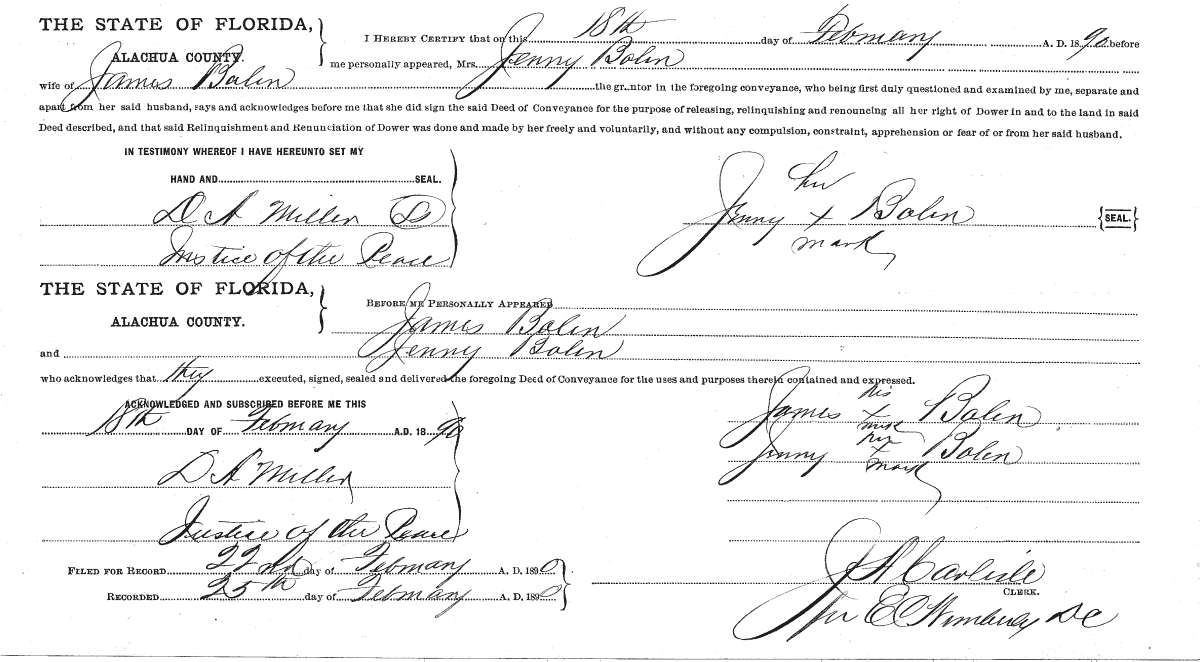 THE STATE OF FLORIDA,
ALACHUA COUNTY.
I HEREBY CERTIFY that on this 18th day of February A. D. 1890 before
me personally appeared, Mrs. Jenny Bolin
wife of James Bolin the gr..ntor in the foregoing conveyance, who being first duly questioned and examined by me, separate and
apart from her said husband, rays and acknowledges before me that she did sign the said Deed of Conveyance for the purpose of releasing, relinquishing and renouncing all her right of Dower in and to the land in said
Deed described, and that said Relinquishment and Renunciation of Dower was done and made by her freely and voluntarily, and without any compulsion, constraint, apprehension or fear of or from her said husband.
IN TESTIMONY WHEREOF I HAVE HEREUNTO SET MY
HAND AND SEAL.
D A Miller
Justice of the Peace
her
Jenny x Bolin {SEAL.}
mark
THE STATE OF FLORIDA,
ALACHUA COUNTY.
BEFORE ME PERSONALLY APPEARED
James Bolin
and Jenny Bolin
who acknowledges that they executed, signed, sealed and delivered the foregoing Deed of Conveyance for the uses and purposes therein contained and expressed.
ACKNOWLEDGED AND SUBSCRIBED BEFORE ME THIS
18th DAY OF February A.D. 1890
D A Miller
Justice of the Peace
his
James x Bolin
mark
her
Jenny x Bolin
mark
FILED FOR RECORD 22nd day of February A. D. 1890
RECORDED 25th day of February A. D. 1890
J A Carlisle
CLERK.
per E C DC